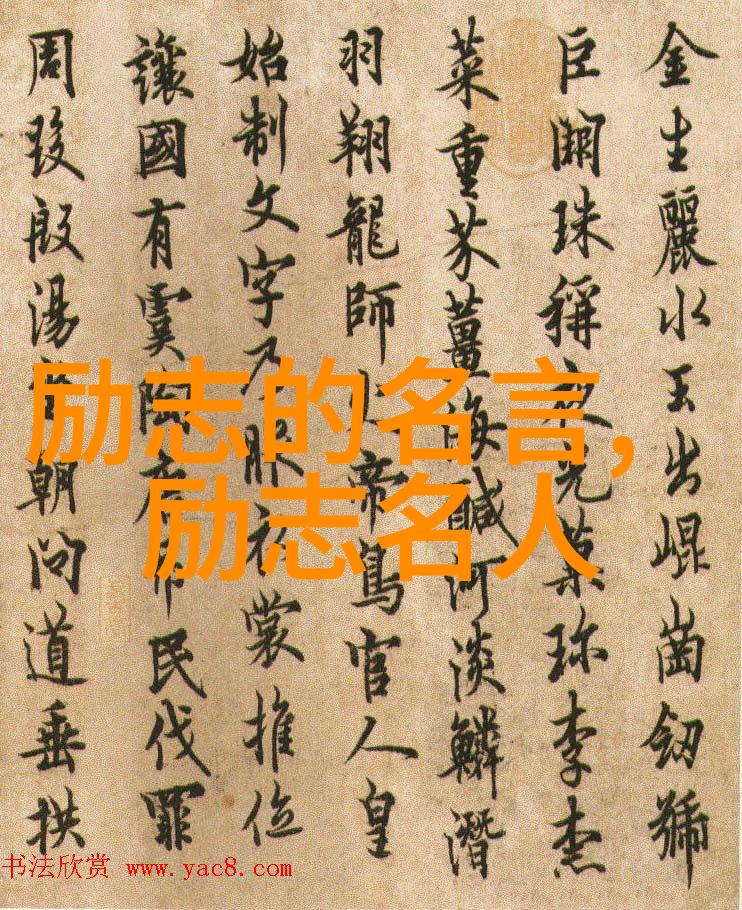 金生麗水玉出崐崗劒號
巨闕珠稱夜光菓珎李柰
菜重芥薑海鹹河淡鱗潛
羽翔龍師火帝鳥官人皇
始制文字乃服衣裳推位
讓國有虞陶唐弔民伐罪
周發殷湯坐朝問道垂拱
励志的名言,
励志名人
书法欣赏 www.yac8.com